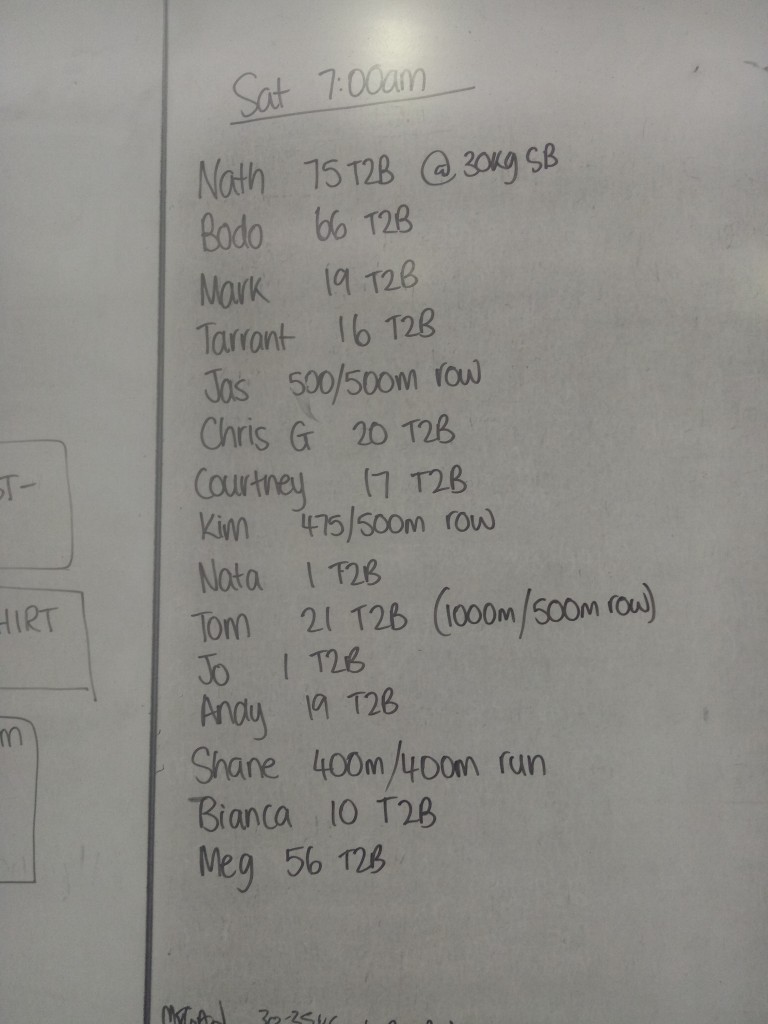 Sat 7:00am
Nath 75 T2B @ 30kg SB
Bodo 66 T2B
Mark 19 T2B
Tarrant 16 T2B
Jas 500/500m row
Chris G 20 T2B
Courtney 17 T2B
Kim 475/500m row
Nata 1 T2B
Tom 21 T2B (1000m/500m row)
Jo 1 T2B
Andy 19 T2B
Shane 400m/400m run
Bianca 10 T2B
Meg 56 T2B
ST-
HIRT
m